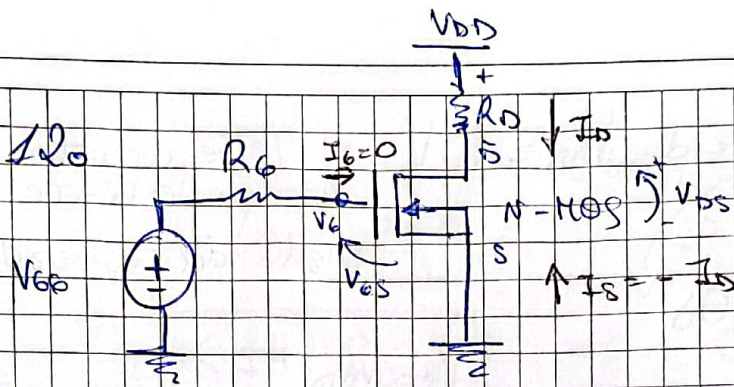 VDD
+
RD
ID
12.
RG
IG=0
D
VG
N-MOS
+
-
VDS
VGG
+
-
VGS
S
IS = - ID